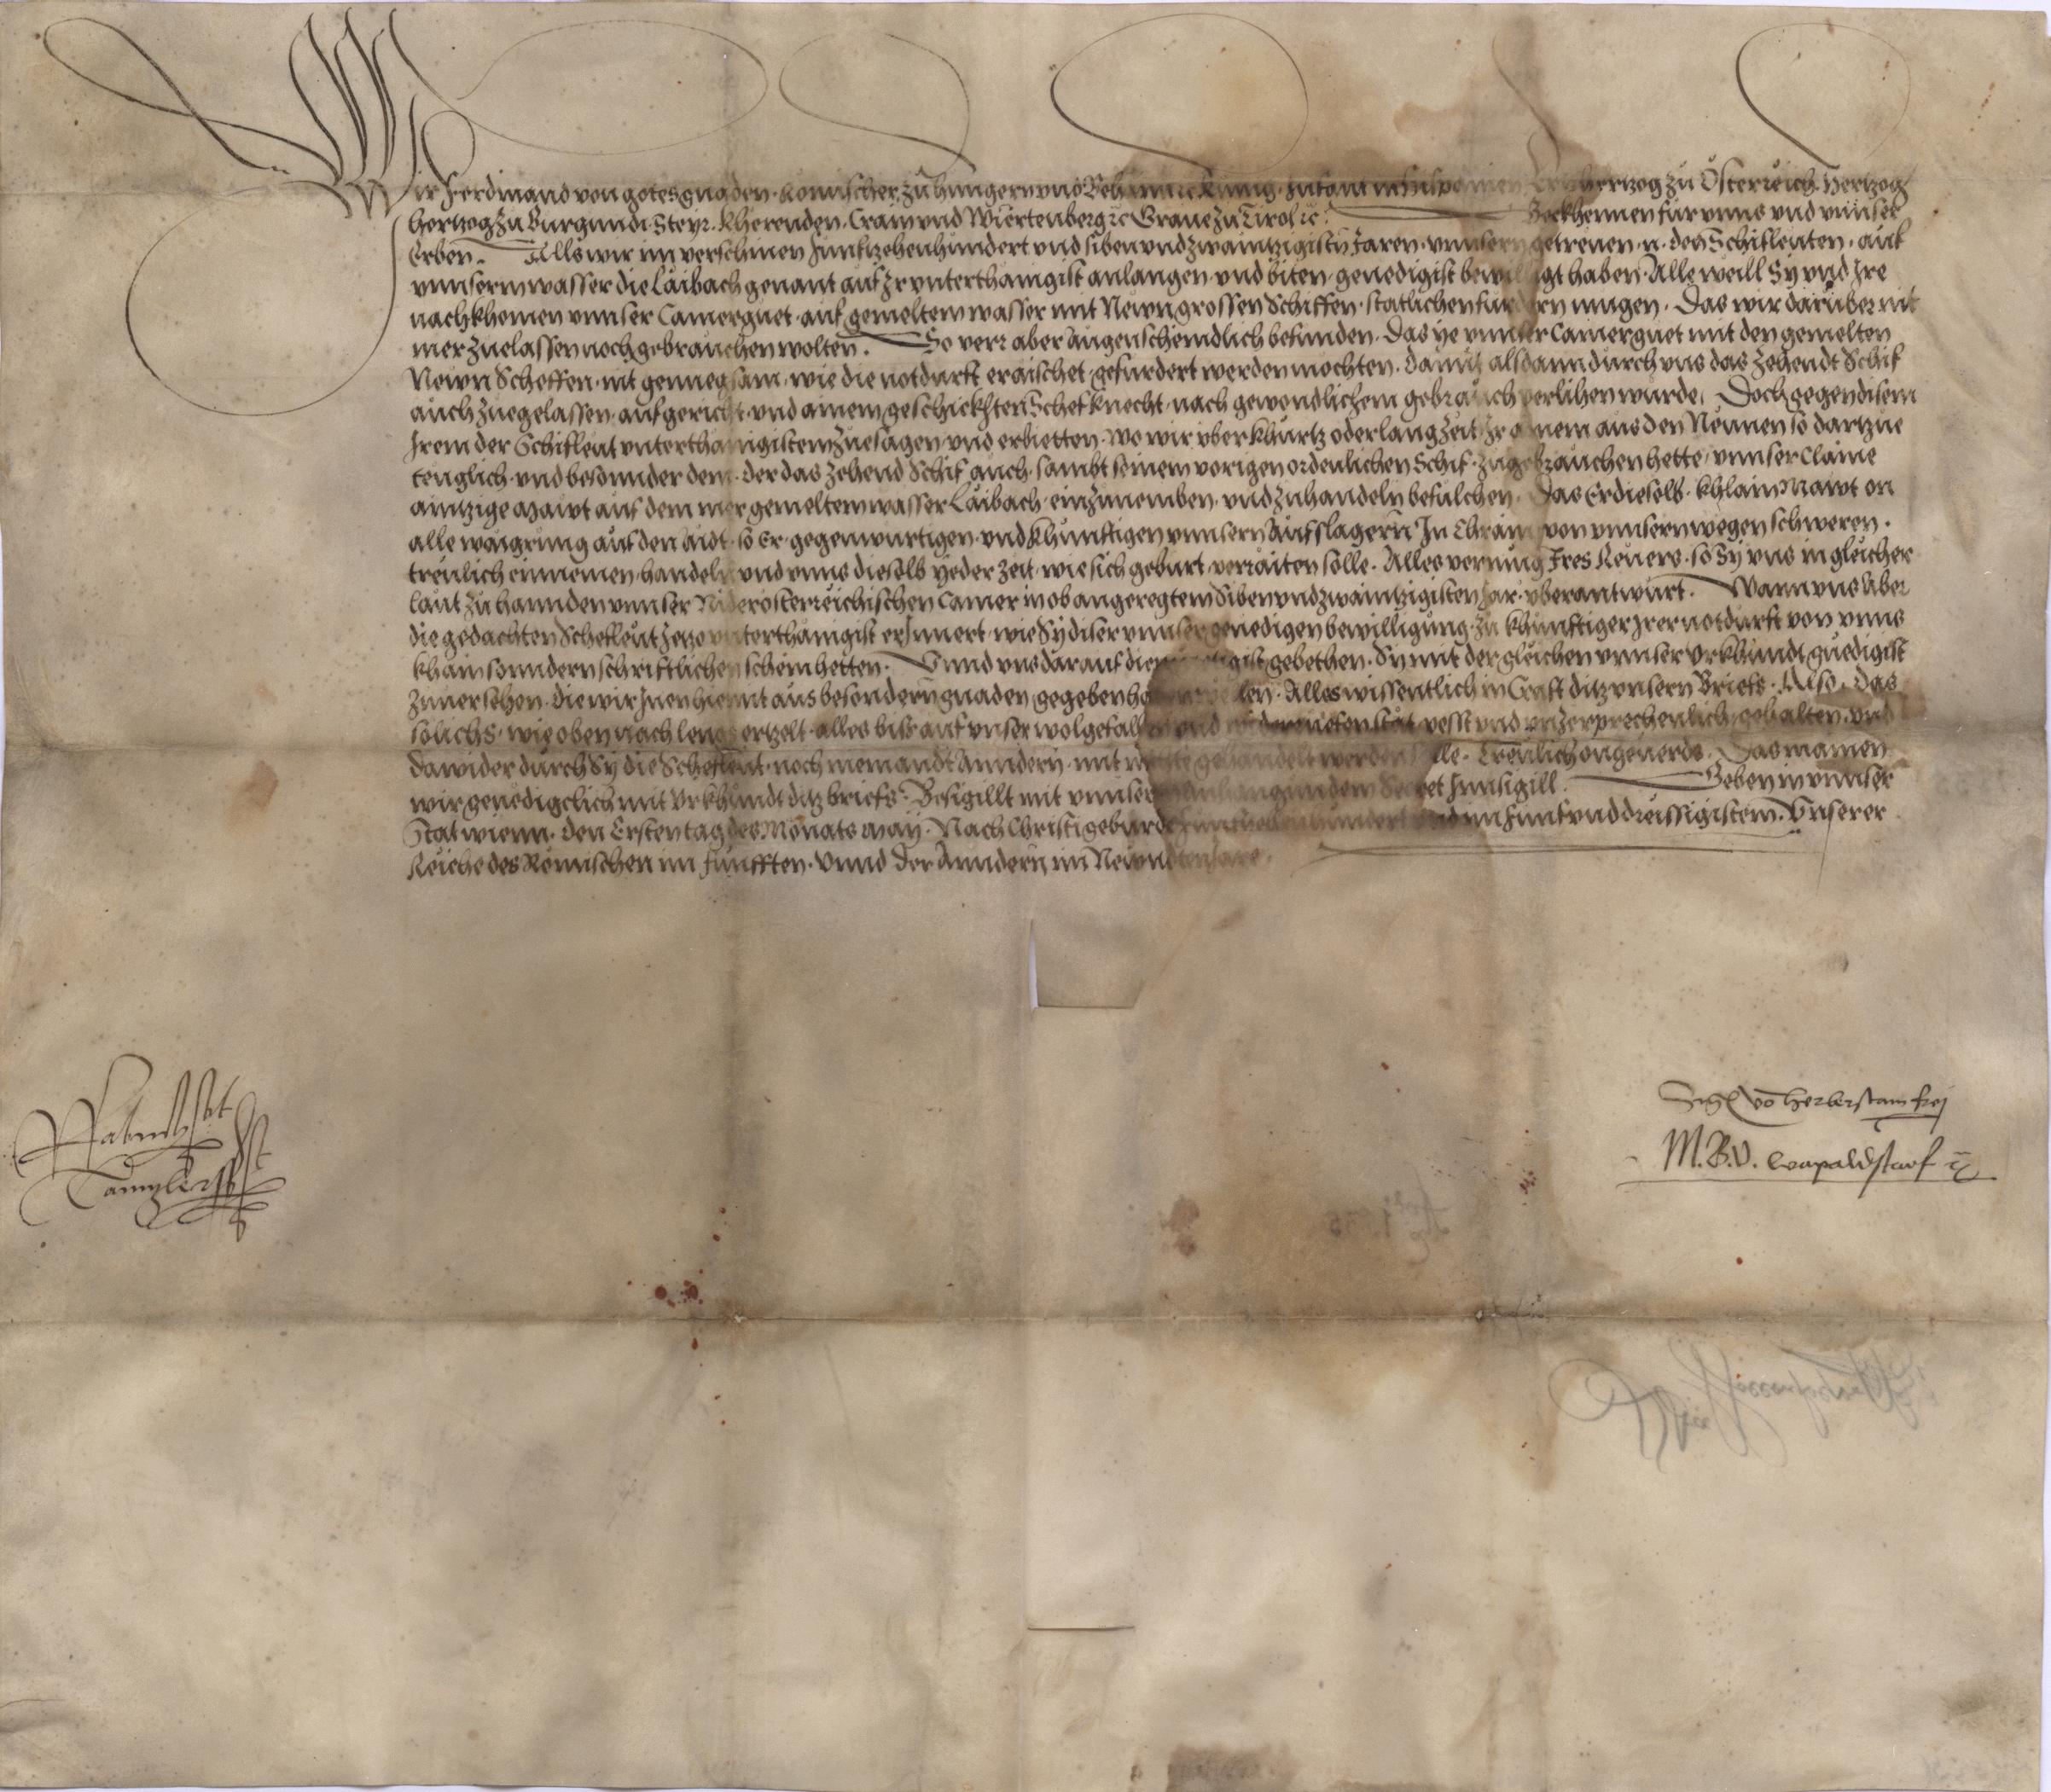 Wir Ferdinand von gotes gnaden Romischer zu hungern vnd Beham Kunig hertzog zu Österreich. Hertzog
hertzog zu Burgundi. Steyr. Kherenden. Crain vnd Wiertenberg ɾc Graue zu Tirol ɾc. Bekhennen fur vnns vnd vnnser
Erben. Alls wir im verschinen Funfzehenhundert vnd siben vnd zwaintzigisten Jaren. vnnsern getreuen. n. den Schifleuten. auf
vnnserm wasser die Laibach genant auf Ir vnterthanigist anlangen. vnd biten. genedigist bewilligt haben. Alle weill Sy vnd Ire
nachkhomen vnnser Camerguet. auf gemeltem wasser mit Newn grossen Schiffen. statlichen furdern mugen. Das wir daruber nit
mer zuelassen noch gebrauchen wolten. So verr aber augenscheindlich befunden. Das ye vnnser Camerguet mit den gemelten
Newn Scheffen. nit genuegsam. wie die notdurft eraischet. gefurdert werden mochten. damit alsdann durch vns das zehendt Schif
auch zuegelassen. aufgericht. vnd ainem geschickhten Schefknecht. nach gewondlichem gebrauch verlihen wurde. Doch gegen disem
Irem der Schifleut vnterthanigistem zuesagen vnd erbietten. wo wir vber khurtz oder lang zeit Ir ainem aus den Neunen so dartzue
teuglich. vnd besonnder dem. der das zehend Schif auch. sambt seinem vorigen ordenlichen Schif. zugebrauchen hette. vnnser Claine
aintzige Mawt auf dem mergemeltem wasser Laibach. einzunemben. vnd zuhandeln befulchen. Das Er dieselb. khlain Mawt on
alle waigrung auf den aidt. so Er. gegenwurtigen. vnd khunftigen vnnsern Aufslagern In Chrain von vnnsern wegen schweren.
treulich einnemen. handeln vnd vnns dieselb yeder zeit. wie sich geburt. verraiten solle. Alles vermug Ires Reuers. so Sy vns in gleicher
laut zu hannden vnnser Niderosterreichischen Camer in obangeregtem Siben vnd zwaintzigisten Jar. vberantwurt. Wann vns Aber
die gedachten Schefleut Jetzo vnterthanigist erInnert. wie Sy diser vnnser genedigen bewilligung. zu khunftiger Irer notdurft von vnns
khain sonndern schriftlichen schein hetten. Vnnd vns darauf gebethen. Sy mit dergleichen vnnser Vrkhundt gnedigist
zuuersehen. die wir Inen hiemit aus besondern gnaden gegeben Alles wissentlich in Craft ditz vnsern Briefs. Also. Das
solichs. wie oben nach lengs ertzelt. alles bis auf vnser wolgefallen vnd widerrueffen stät vesst vnd vnzerprechenlich gehalten. vnd
dawider durch Sy die Schefleut. noch niemandt Anndern. mit nichte gehandelt werden solle. Treulich ongeuerde. Das mainen
wir genedigclich mit Vrkhundt ditz briefs. Besigillt mit vnnserm anhangundem Secret Innsigill. Geben in vnnser
Stat wienn. den Ersten tag des Monats May. Nach Christi geburde Funfzehenhundert vnd im Funf vnd dreissigistem. Vnserer
Reiche des Römischen im funfften. Vnnd der Anndern im Newndten Jare.
Sigd vo Herberstain frej
M. B. V. Leopaldstarf ɾc